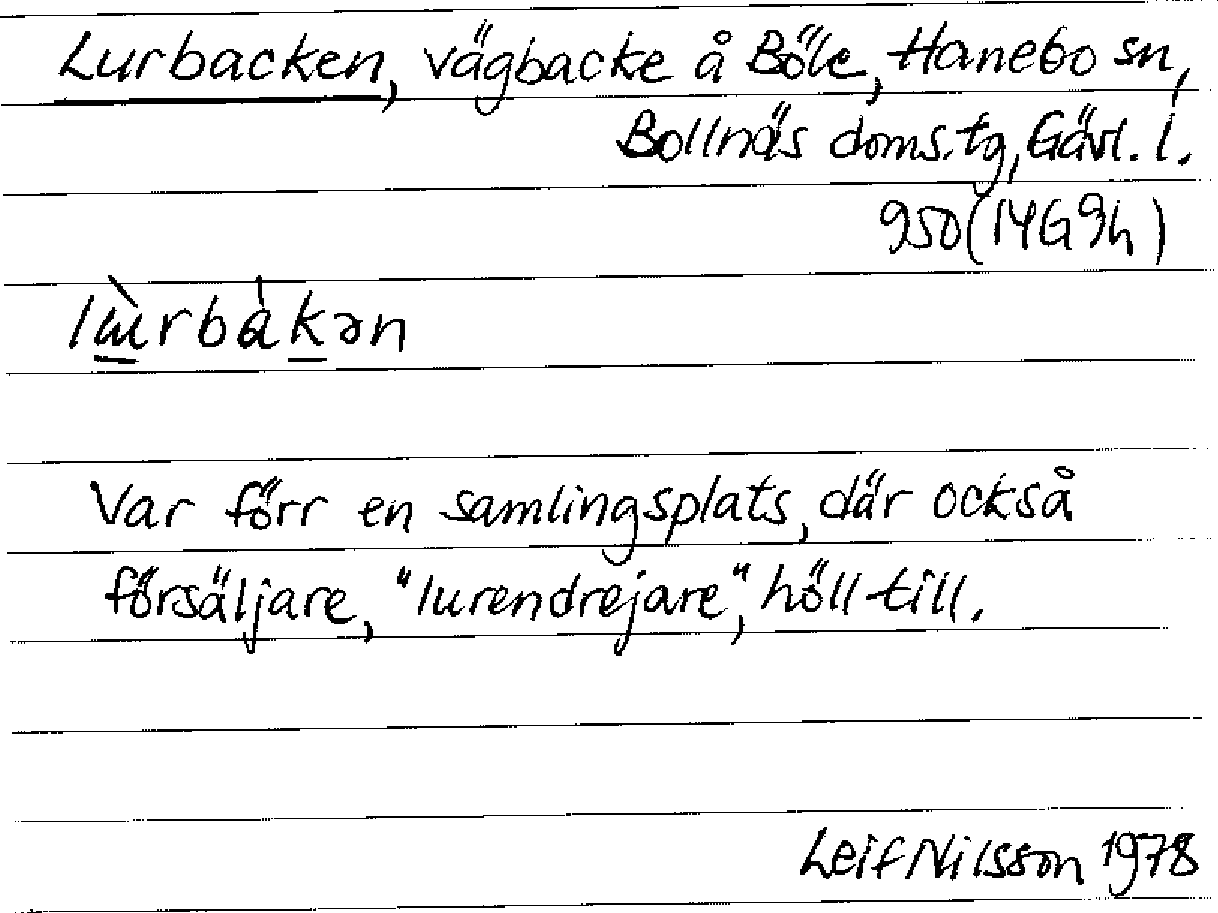 Lurbacken, vägbacke å Böle, Hanebo sn,
Bollnäs doms.tg, Gävl. l.
950 (14G9h)
lɯ̀rbàkən
Var förr en samlingsplats, där också
försäljare, "lurendrejare", höll till.
Leif Nilsson 1978